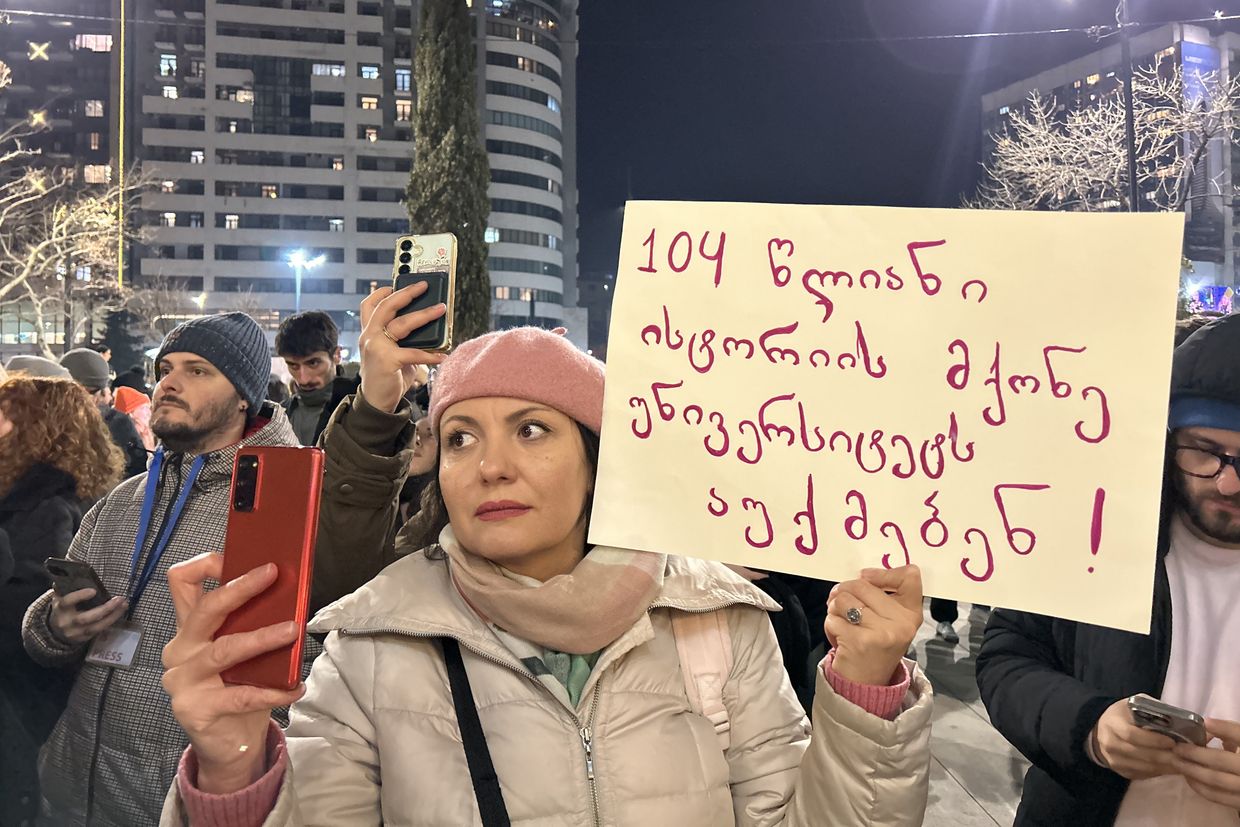 104 წლიანი
ისტორიის მქონე
უნივერსიტეტს
აუქმებენ!
PRESS